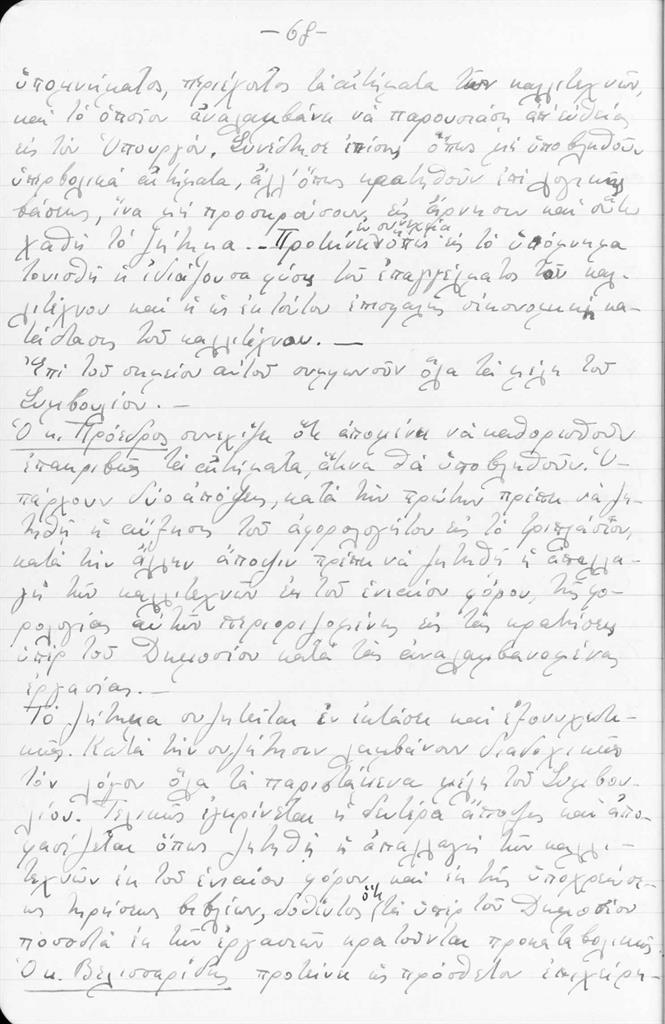 -68-
ὑπομνήματος, περιέχοντος τὰ αἰτήματα τῶν καλλιτεχνῶν,
καὶ τὸ ὁποῖον ἀναλαμβάνει νὰ παρουσιάσῃ ἀπ' εὐθείας
εἰς τὸν Ὑπουργόν. Συνέστησε ἐπίσης ὅπως μὴ ὑποβληθοῦν
ὑπερβολικὰ αἰτήματα, ἀλλ' ὅπως κρατηθοῦν ἐπὶ λογικῆς
βάσεως, ἵνα μὴ προσκρούσουν εἰς ἄρνησιν καὶ οὕτω
χαθῇ τὸ ζήτημα. -- Προτείνει ὅπως ἐν συνεχείᾳ εἰς τὸ ὑπόμνημα
τονισθῇ ἡ ἰδιάζουσα φύσις τοῦ ἐπαγγέλματος τοῦ καλ-
λιτέχνου καὶ ἡ ὡς ἐκ τούτου ἐπισφαλὴς οἰκονομικὴ κα-
τάστασις τοῦ καλλιτέχνου. —
Ἐπὶ τοῦ σημείου αὐτοῦ συμφωνοῦν ὅλα τὰ μέλη τοῦ
Συμβουλίου. -
Ὁ κ. Πρόεδρος συνεχίζει ὅτι ἀπομένει νὰ καθορισθοῦν
ἐπακριβῶς τὰ αἰτήματα, ἅτινα θὰ ὑποβληθοῦν. Ὑ-
πάρχουν δύο ἀπόψεις, κατὰ τὴν πρώτην πρέπει νὰ ζη-
τηθῇ ἡ αὔξησις τοῦ ἀφορολογήτου εἰς τὸ τριπλάσιον,
κατὰ τὴν ἄλλην ἄποψιν πρέπει νὰ ζητηθῇ ἡ ἀπαλλα-
γὴ τῶν καλλιτεχνῶν ἐκ τοῦ ἑνιαίου φόρου, τῆς φο-
ρολογίας αὐτῶν περιοριζομένης εἰς τὰς κρατήσεις
ὑπὲρ τοῦ Δημοσίου κατὰ τὰς ἀναλαμβανομένας
ἐργασίας. -
Τὸ ζήτημα συζητεῖται ἐν ἐκτάσει καὶ ἐξονυχιστι-
κῶς. Κατὰ τὴν συζήτησιν λαμβάνουν διαδοχικῶς
τὸν λόγον ὅλα τὰ παριστάμενα μέλη τοῦ Συμβου-
λίου. Τελικῶς ἐγκρίνεται ἡ δευτέρα ἄποψις καὶ ἀπο-
φασίζεται ὅπως ζητηθῇ ἡ ἀπαλλαγὴ τῶν καλλι-
τεχνῶν ἐκ τοῦ ἑνιαίου φόρου καὶ ἐκ τῆς ὑποχρεώσε-
ως τηρήσεως βιβλίων, δοθέντος ὅτι τὰ ὑπὲρ τοῦ Δημοσίου
ποσοστὰ ἐκ τῶν ἐργασιῶν κρατοῦνται προκαταβολικῶς.
Ὁ κ. Βελισσαρίδης προτείνει ὡς πρόσθετον ἐπιχείρη-